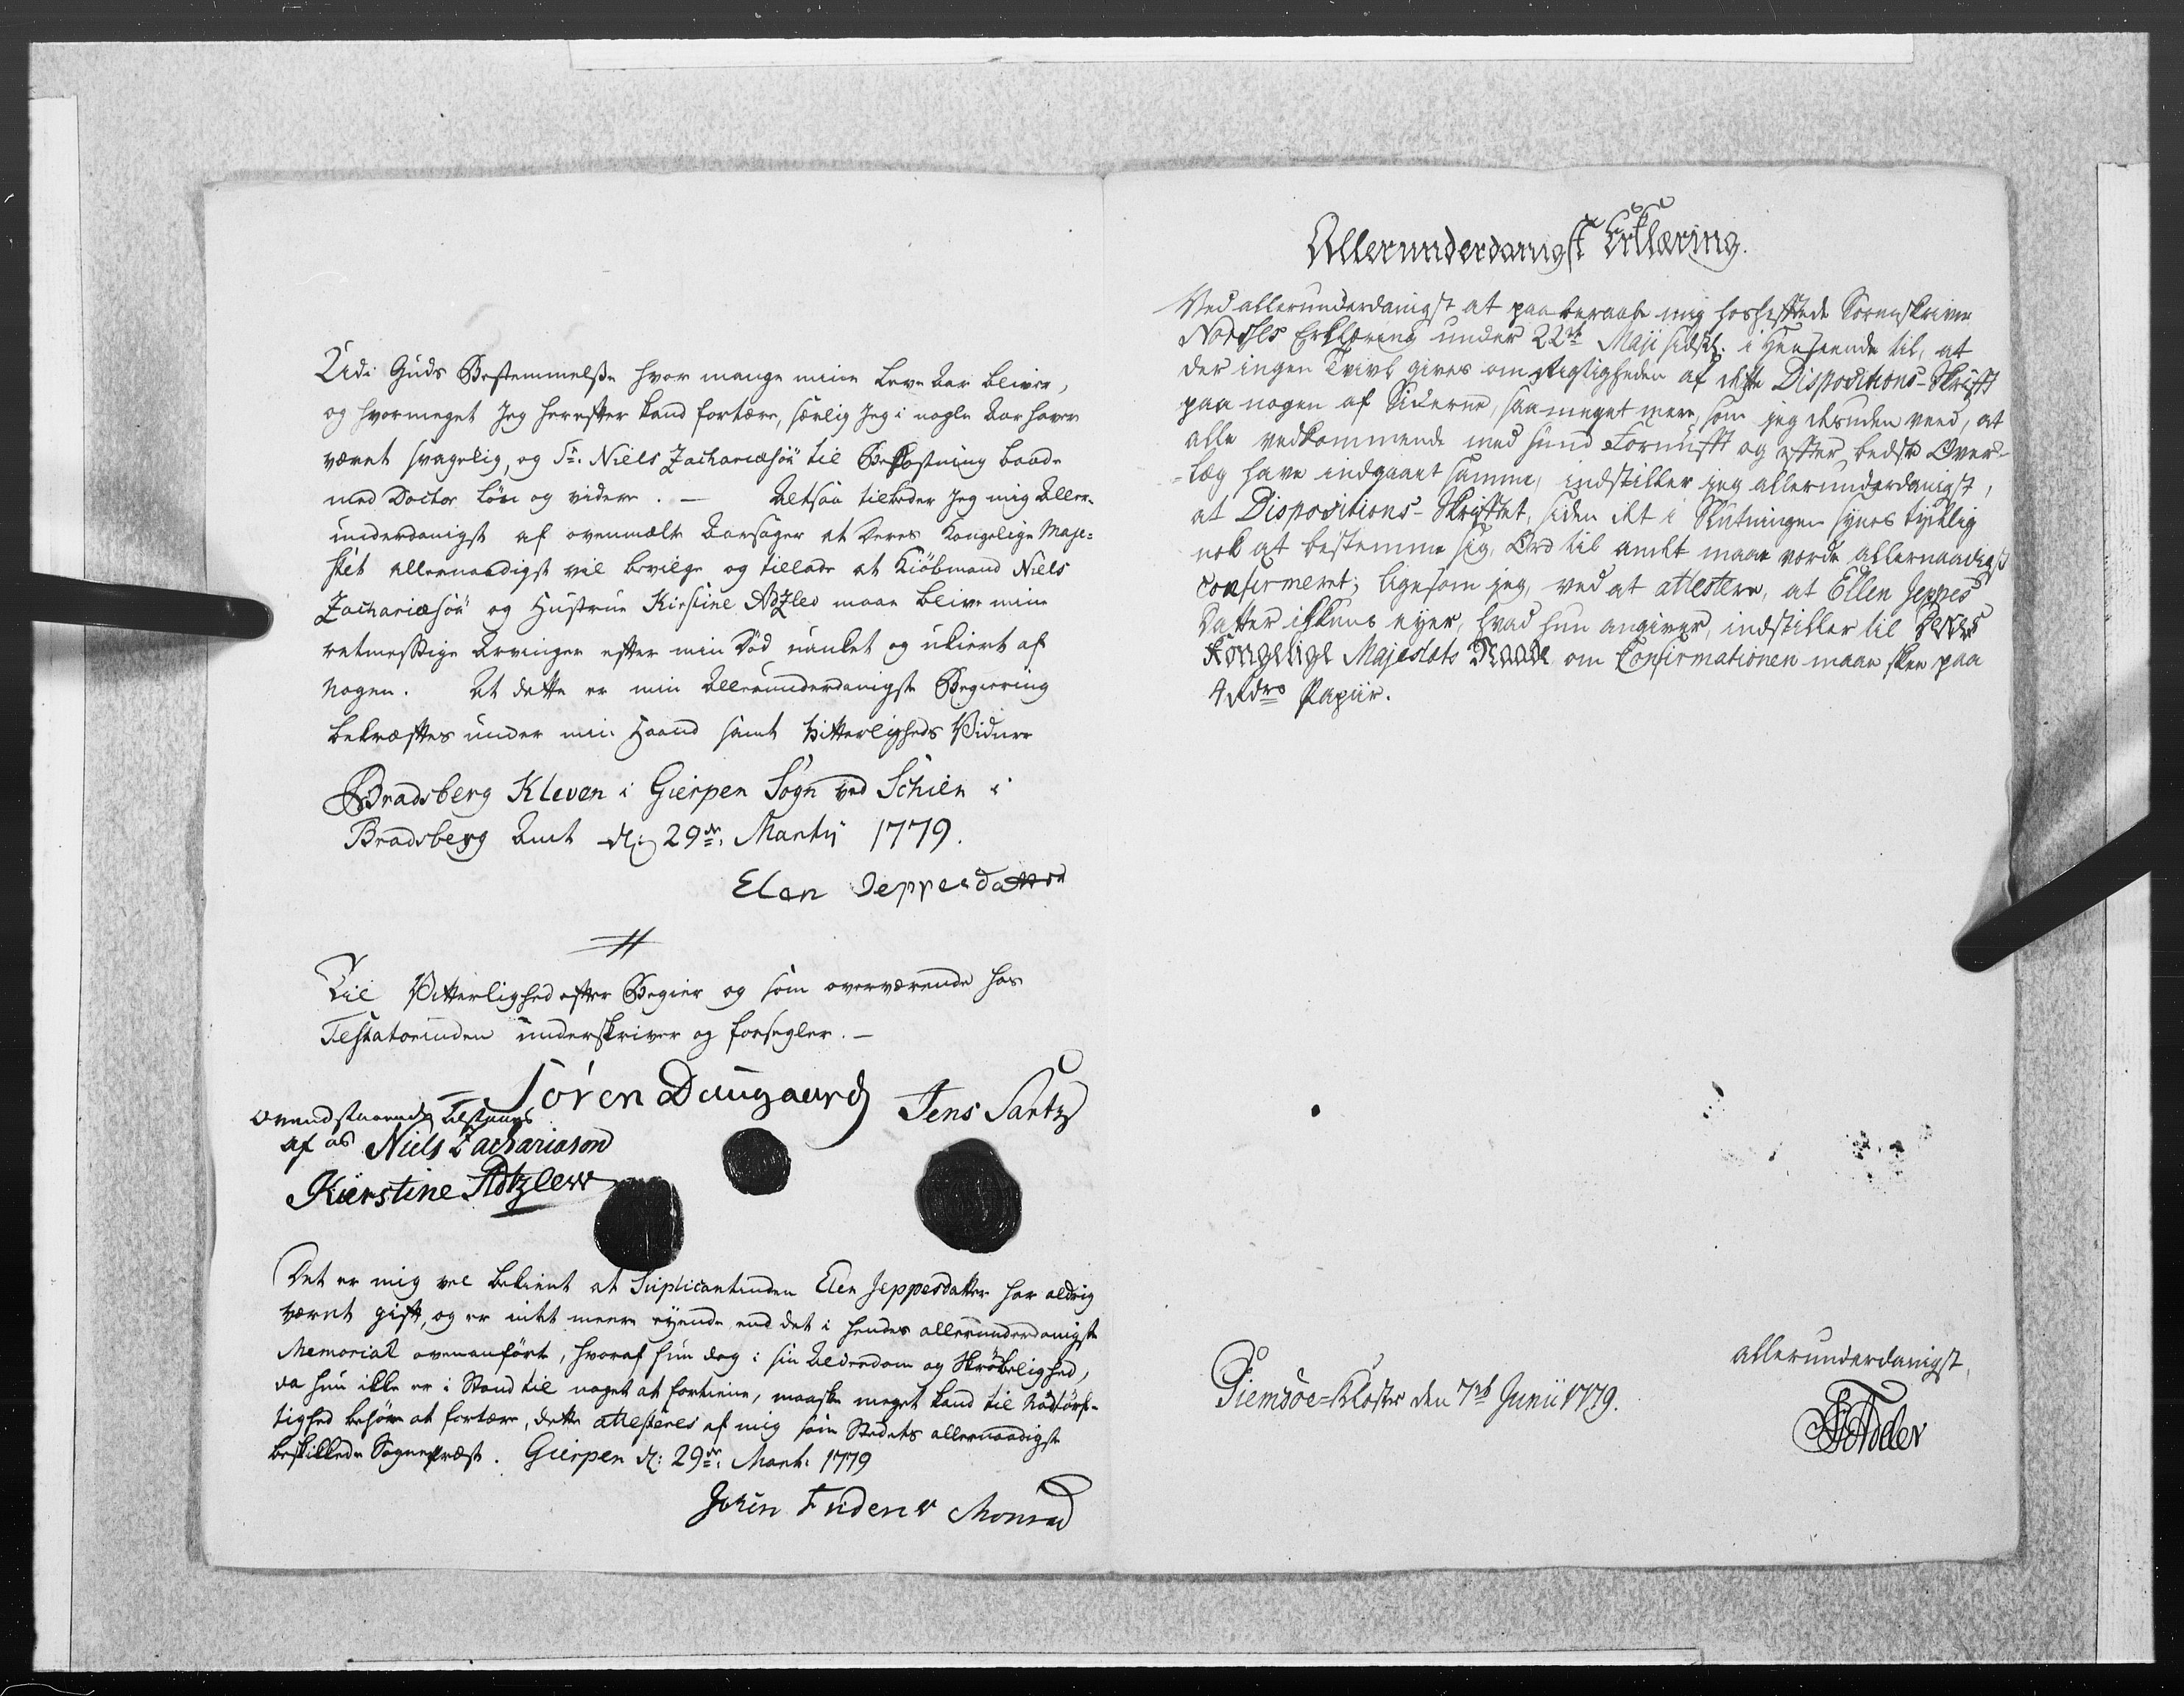 Udi Guds Bestemmelse hvor mange mine Leve Aar bliver,
og hvormeget Jeg herefter kand fortære, særlig Jeg i nogle Aar haver
været svagelig, og Sr. Niels Zachariæsön til Bekostning baade
med Doctor Lön og videre. — Altsaa tilbeder Jeg mig Aller-
underdanigst af ovenmælte Aarsager at Deres Kongelige Maje-
stet allernaadigst vil bevilge og tillade at Kiöbmand Niels
Zachariæsön og Hustrue Kirstine Adzlev maae blive mine
retmessige Arvinger efter min Död uanket og ukiert af
nogen. At dette er min Allerunderdanigste Begiering
bekræftes under min Haand samt Vitterligheds Vidner
Bradsberg Kleven i Gierpen Sogn ved Schien i
Bradsberg Amt d: 29de Martij 1779.
Elen Jeppesdatter
Til Vitterlighed efter Begier og som overværende hos
Testatorinden underskriver og forsegler. —
Sören Daugaard Jens Sartz
Ovenstaaende tilstaaes
af os Niels Zachariason
Kierstine Adtzlew
Det er mig vel bekient at Suplicantinden Elen Jeppesdatter har aldrig
været gift, og er intet meere eyende end det i hendes allerunderdanigste
Memorial ovenanförte, hvoraf hun dog i sin Alderdom og Skröbelighed,
da hun ikke er i Stand til noget at fortiene, maaske meget kand til Nödtörf-
tighed behöve at fortære, dette attesteres af mig som Stedets allernaadigst
beskikkede Sognepræst. Gierpen d: 29de Marti 1779
John Frideric Monrad
Allerunderdanigst Erklæring.
Ved allerunderdanigst at paaberaabe mig hoshæftede Sorenskriver
Erklæring under 22de Maji sidstl. i Henseende til, at
der ingen Tvivl gives om Rigtigheden af dette Dispositions-Skrift
paa nogen af Siderne, saa meget mere, som jeg desuden veed, at
alle vedkommende med sund Fornuft og efter bedste Over-
-læg have indgaaet samme, indstiller jeg allerunderdanigst,
at Dispositions-Skriftet, siden det i Slutningen synes tydelig
nok at bestemme sig, Ord til andet maae vorde allernaadigst
confirmeret; ligesom jeg, ved at attestere, at Ellen Jeppes
Datter ikkuns eyer, hvad hun angiver, indstiller til Deres
Kongelige Majestæts Naade om Confirmationen maae skee paa
4 Rdrs Papiir.
Giemsöe-Kloster den 7de Junii 1779.
allerunderdanigst,
Adeler